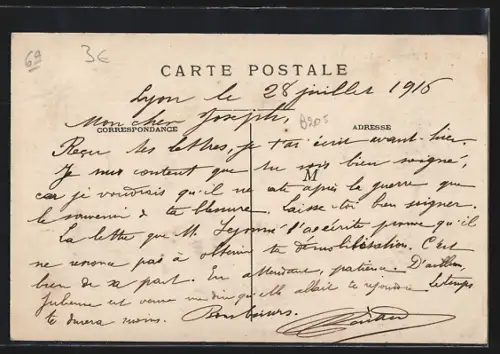 69
3€
CARTE POSTALE
Lyon le 28 juillet 1916
Mon cher Joseph,
B205
CORRESPONDANCE
ADRESSE
Reçu tes lettres, je t'ai écrit avant-hier.
Je suis content que tu sois bien soigné,
M
car je voudrais qu'il ne reste après la guerre que
le souvenir de ta blessure. Laisse-toi bien soigner.
La lettre que M. t'a écrite prouve qu'il
ne renonce pas à obtenir ta démobilisation. C'est
bien de sa part. En attendant, patience. D'ailleurs,
Julienne est venue me dire qu'elle allait te rejoindre. Le temps
te durera moins. Bons baisers.